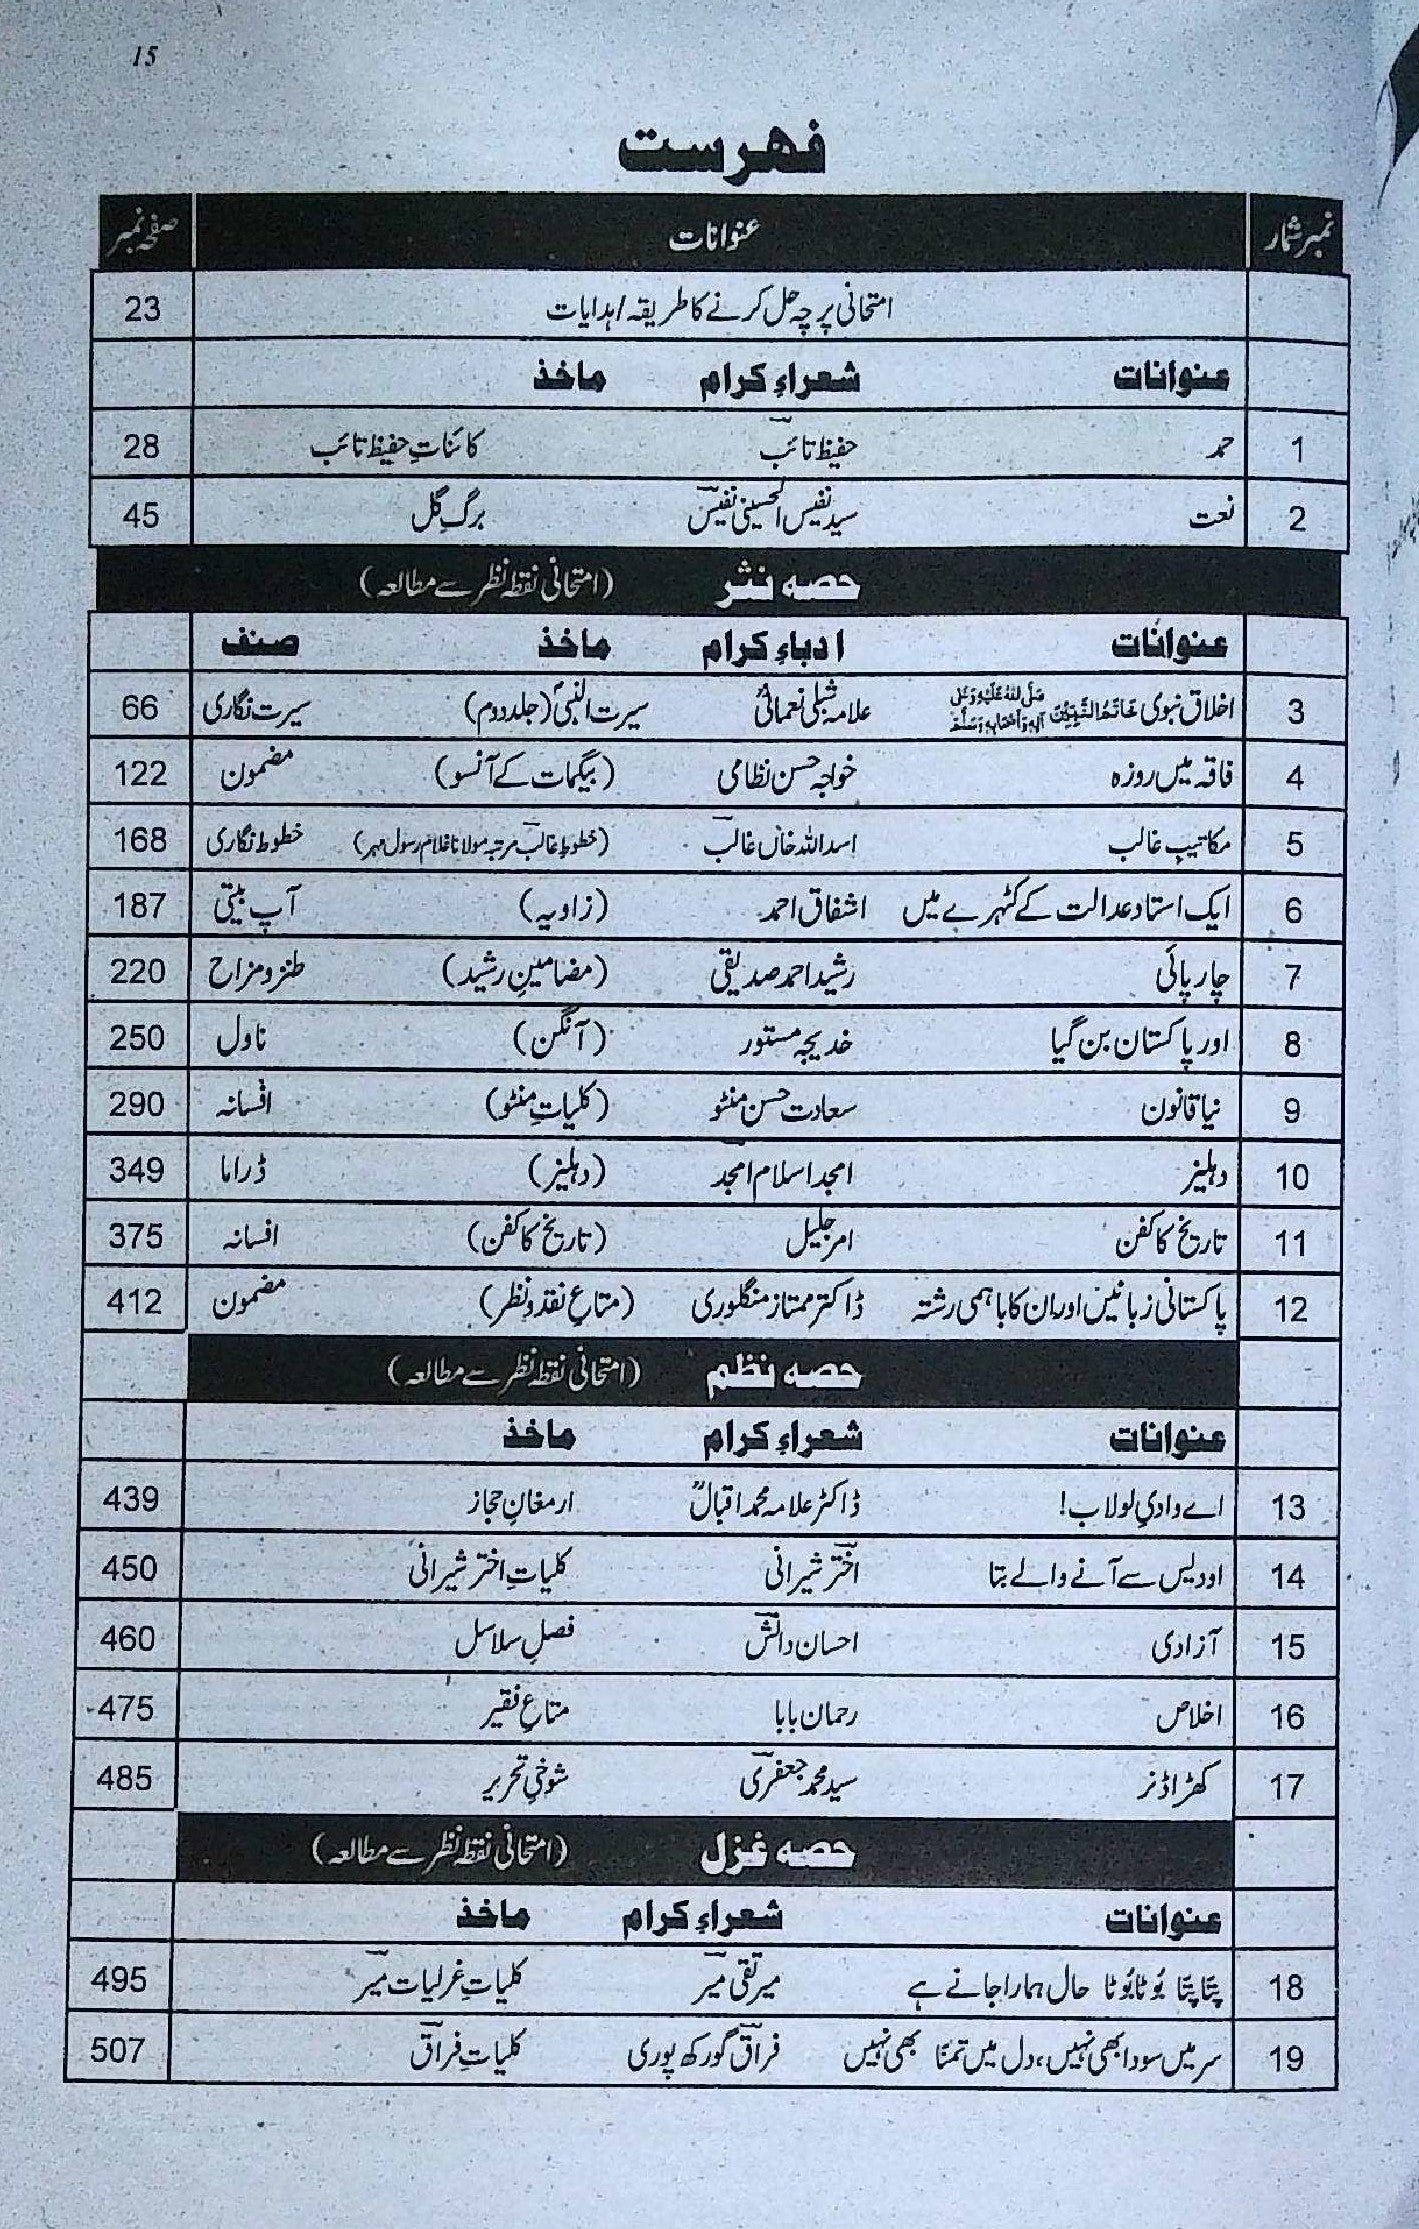 15
فہرست
نمبر شمار عنوانات صفحہ نمبر
امتحانی پرچہ حل کرنے کا طریقہ / ہدایات 23
عنوانات شعراءِ کرام ماخذ
1 حمد حفیظ تائب کائناتِ حفیظ تائب 28
2 نعت سید نفیس الحسینی نفیس برگِ گل 45
حصہ نثر (امتحانی نقطہ نظر سے مطالعہ)
عنوانات ادباءِ کرام ماخذ صنف
3 اخلاق نبوی خَاتَمُ النَّبِیّٖنَ صَلَّی اللہُ عَلَیْہِ وَعَلٰی آلِہٖ وَاَصْحَابِہٖ وَسَلَّمَ علامہ شبلی نعمانیؒ سیرت النبیؐ (جلد دوم) سیرت نگاری 66
4 فاقہ میں روزہ خواجہ حسن نظامی (بیگمات کے آنسو) مضمون 122
5 مکاتیبِ غالب اسد اللہ خاں غالب (خطوطِ غالب مرتبہ مولانا غلام رسول مہر) خطوط نگاری 168
6 ایک استاد عدالت کے کٹہرے میں اشفاق احمد (زاویہ) آپ بیتی 187
7 چارپائی رشید احمد صدیقی (مضامینِ رشید) طنز و مزاح 220
8 اور پاکستان بن گیا خدیجہ مستور (آنگن) ناول 250
9 نیا قانون سعادت حسن منٹو (کلیاتِ منٹو) افسانہ 290
10 دہلیز امجد اسلام امجد (دہلیز) ڈراما 349
11 تاریخ کا کفن امر جلیل (تاریخ کا کفن) افسانہ 375
12 پاکستانی زبانیں اور ان کا باہمی رشتہ ڈاکٹر ممتاز منگلوری (متاعِ نقد و نظر) مضمون 412
حصہ نظم (امتحانی نقطہ نظر سے مطالعہ)
عنوانات شعراءِ کرام ماخذ
13 اے وادیِ لولاب! ڈاکٹر علامہ محمد اقبالؒ ارمغانِ حجاز 439
14 او دیس سے آنے والے بتا اختر شیرانی کلیاتِ اختر شیرانی 450
15 آزادی احسان دانش فصلِ سلاسل 460
16 اخلاص رحمان بابا متاعِ فقیر 475
17 کھڑا ڈنر سید محمد جعفری شوخیِ تحریر 485
حصہ غزل (امتحانی نقطہ نظر سے مطالعہ)
عنوانات شعراءِ کرام ماخذ
18 پتّا پتّا بُوٹا بُوٹا حال ہمارا جانے ہے میر تقی میر کلیاتِ غزلیات میر 495
19 سر میں سودا بھی نہیں، دل میں تمنّا بھی نہیں فراق گورکھ پوری کلیاتِ فراق 507